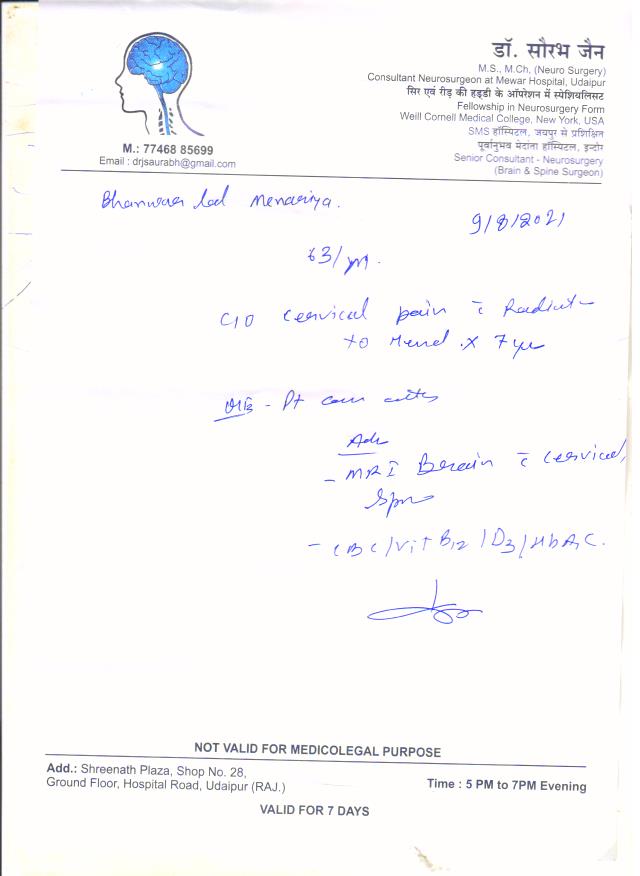 डॉ. सौरभ जैन
M.S., M.Ch, (Neuro Surgery)
Consultant Neurosurgeon at Mewar Hospital, Udaipur
सिर एवं रीड़ की हड्डी के ऑपरेशन में स्पेशियलिसट
Fellowship in Neurosurgery Form
Weill Cornell Medical College, New York, USA
SMS हॉस्पिटल, जयपुर से प्रशिक्षित
पूर्वानुभव मेदांता हॉस्पिटल, इन्दौर
Senior Consultant - Neurosurgery
(Brain & Spine Surgeon)
M.: 77468 85699
Email : drjsaurabh@gmail.com
Bhanwar lal Menariya.
9/8/2021
63/M.
C/O Cervical pain c̄ Radiat
to x 7 yr
O/E - Pt
Adv
- MRI Brain c̄ Cervical
Spn
- CBC/Vit B12/D3/HbA1C.
NOT VALID FOR MEDICOLEGAL PURPOSE
Add.: Shreenath Plaza, Shop No. 28,
Ground Floor, Hospital Road, Udaipur (RAJ.)
Time : 5 PM to 7PM Evening
VALID FOR 7 DAYS